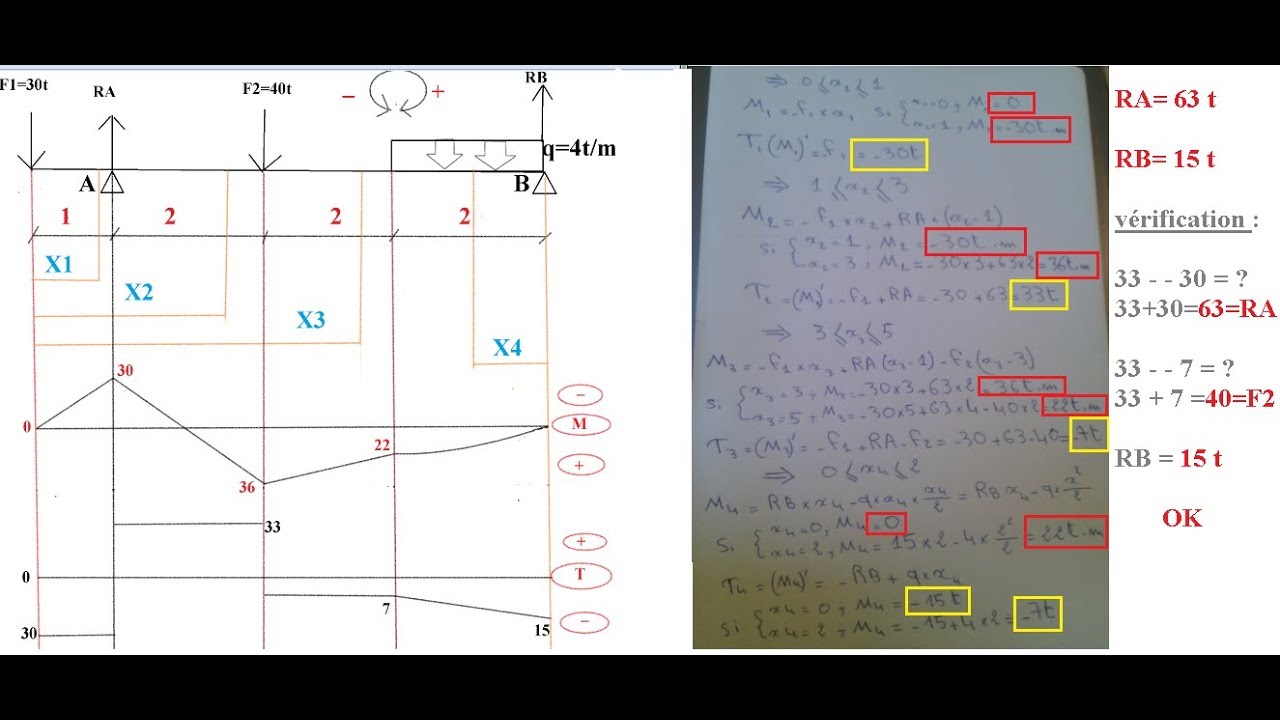 F1=30t
RA
F2=40t
−
+
RB
q=4t/m
A
B
1
2
2
2
X1
X2
X3
X4
30
0
22
36
−
M
+
33
+
0
T
7
30
15
−
⇒ 0 ⩽ x1 ⩽ 1
M1 = -f1 × x1 si { x1=0 ; M1 = 0
x1=1 ; M1 = -30t.m
T1 (M1)' = f1 = -30t
⇒ 1 ⩽ x2 ⩽ 3
M2 = - f1 × x2 + RA × (x2-1)
si { x2 = 1, M2 = -30t.m
x2 = 3 ; M2 = -30×3+63×2 = 36t.m
T2 = (M2)' = - f1 + RA = -30 + 63 = 33t
⇒ 3 ⩽ x3 ⩽ 5
M3 = -f1 × x3 + RA (x3-1) - f2 (x3-3)
si { x3 = 3, M3 = -30×3 + 63×2 = 36t.m
x3 = 5 ; M3 = -30×5+63×4-40×2 = 22t.m
T3 = (M3)' = - f1 + RA - f2 = -30 + 63 - 40 = -7t
⇒ 0 ⩽ x4 ⩽ 2
M4 = RB × x4 - q × x4 × x4/2 = RB x4 - q × x²/2
si { x4=0, M4 = 0
x4=2 ; M4 = 15×2 - 4 × 2²/2 = 22t.m
T4 = (M4)' = - RB + q × x4
si { x4=0 ; M4 = -15t
x4=2 ; M4 = -15+4×2 = -7t
RA= 63 t
RB= 15 t
vérification :
33 - - 30 = ?
33+30=63=RA
33 - - 7 = ?
33 + 7 =40=F2
RB = 15 t
OK